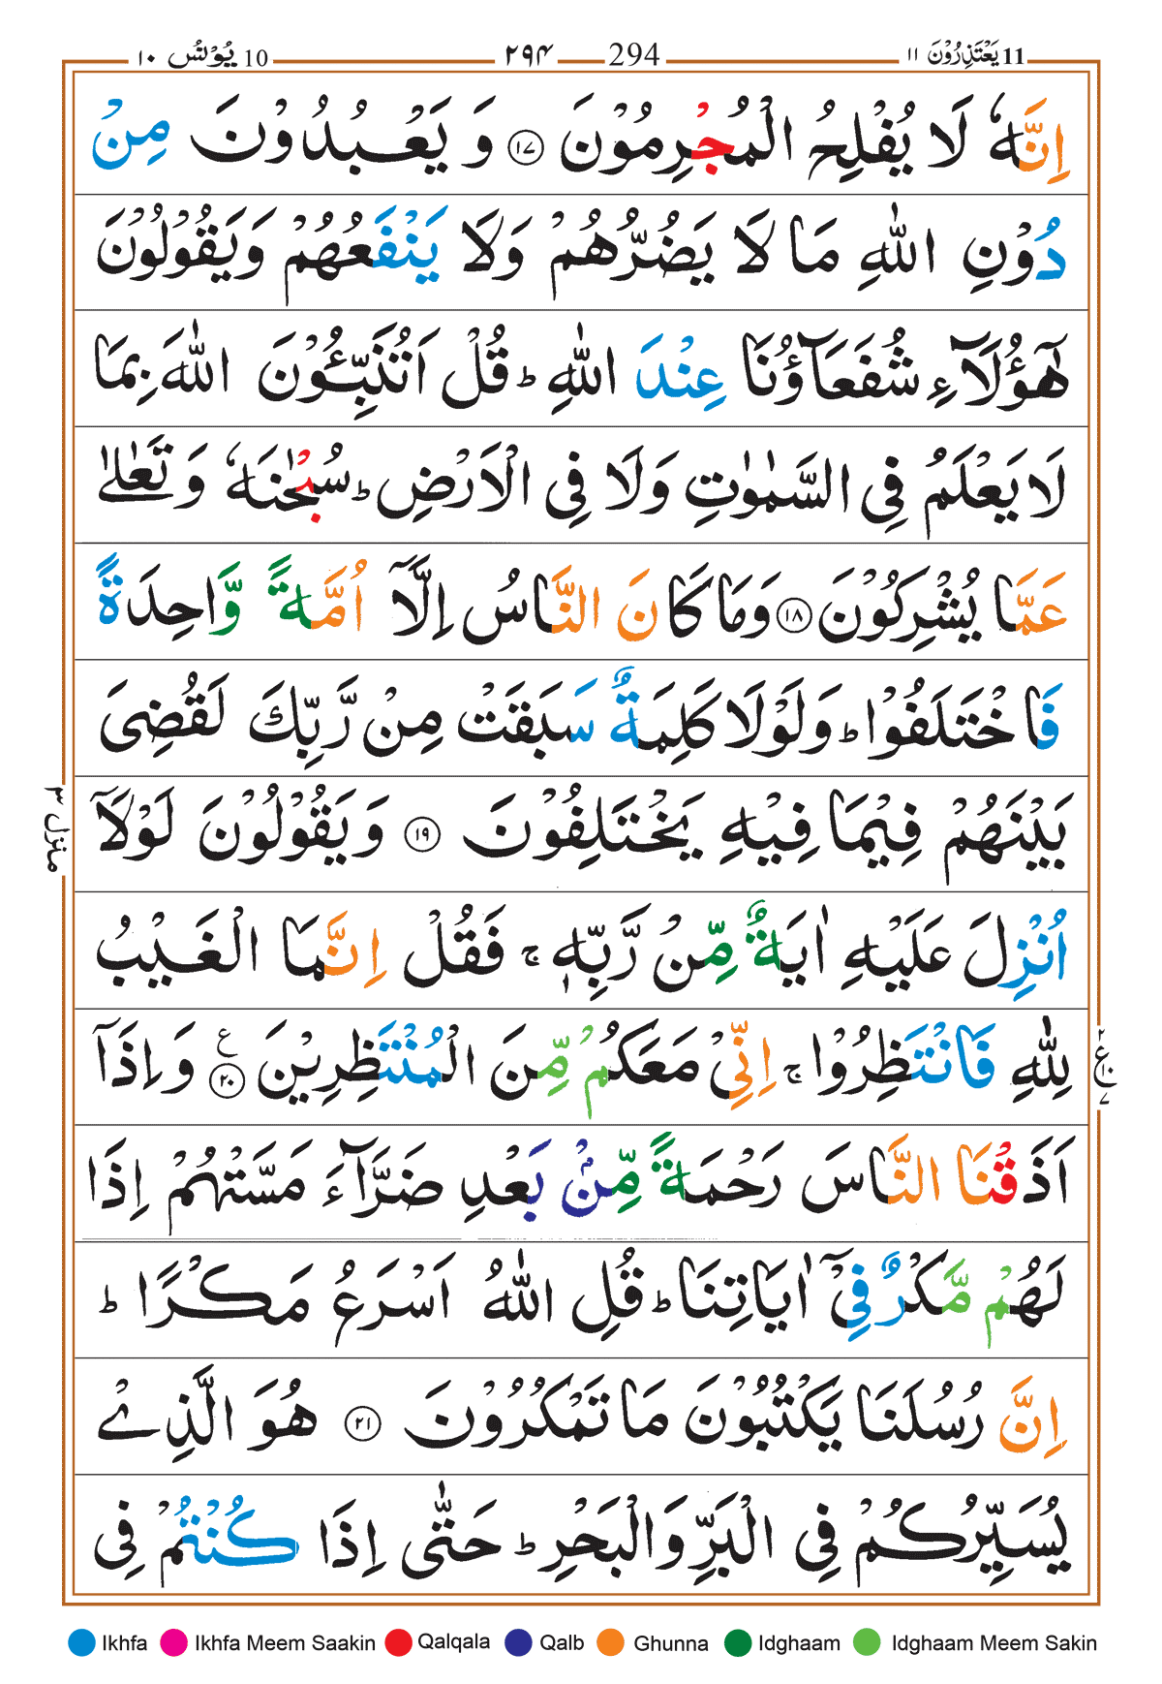 11 يَعْتَذِرُوْنَ ١١ 294 ۲۹۴ 10 يُوْنُسُ ١٠
اِنَّهٗ لَا يُفْلِحُ الْمُجْرِمُوْنَ ﴿١٧﴾ وَ يَعْبُدُوْنَ مِنْ
دُوْنِ اللّٰهِ مَا لَا يَضُرُّهُمْ وَلَا يَنْفَعُهُمْ وَيَقُوْلُوْنَ
هٰٓؤُلَآءِ شُفَعَآؤُنَا عِنْدَ اللّٰهِ ؕ قُلْ اَتُنَبِّـُٔوْنَ اللّٰهَ بِمَا
لَا يَعْلَمُ فِى السَّمٰوٰتِ وَلَا فِى الْاَرْضِ ؕ سُبْحٰنَهٗ وَ تَعٰلٰى
عَمَّا يُشْرِكُوْنَ ﴿١٨﴾ وَمَا كَانَ النَّاسُ اِلَّاۤ اُمَّةً وَّاحِدَةً
فَاخْتَلَفُوْا ؕ وَلَوْلَا كَلِمَةٌ سَبَقَتْ مِنْ رَّبِّكَ لَقُضِىَ
بَيْنَهُمْ فِيْمَا فِيْهِ يَخْتَلِفُوْنَ ﴿١٩﴾ وَيَقُوْلُوْنَ لَوْلَاۤ
اُنْزِلَ عَلَيْهِ اٰيَةٌ مِّنْ رَّبِّهٖ ۚ فَقُلْ اِنَّمَا الْغَيْبُ
لِلّٰهِ فَانْتَظِرُوْا ۚ اِنِّىْ مَعَكُمْ مِّنَ الْمُنْتَظِرِيْنَ ﴿٢٠﴾ ع وَاِذَاۤ
اَذَقْنَا النَّاسَ رَحْمَةً مِّنْۢ بَعْدِ ضَرَّآءَ مَسَّتْهُمْ اِذَا
لَهُمْ مَّكْرٌ فِىْۤ اٰيَاتِنَا ؕ قُلِ اللّٰهُ اَسْرَعُ مَكْرًا ؕ
اِنَّ رُسُلَنَا يَكْتُبُوْنَ مَا تَمْكُرُوْنَ ﴿٢١﴾ هُوَ الَّذِىْ
يُسَيِّرُكُمْ فِى الْبَرِّ وَالْبَحْرِ ؕ حَتّٰى اِذَا كُنْتُمْ فِى
منزل ٣
٢ ع ١٠ ٧
Ikhfa Ikhfa Meem Saakin Qalqala Qalb Ghunna Idghaam Idghaam Meem Sakin